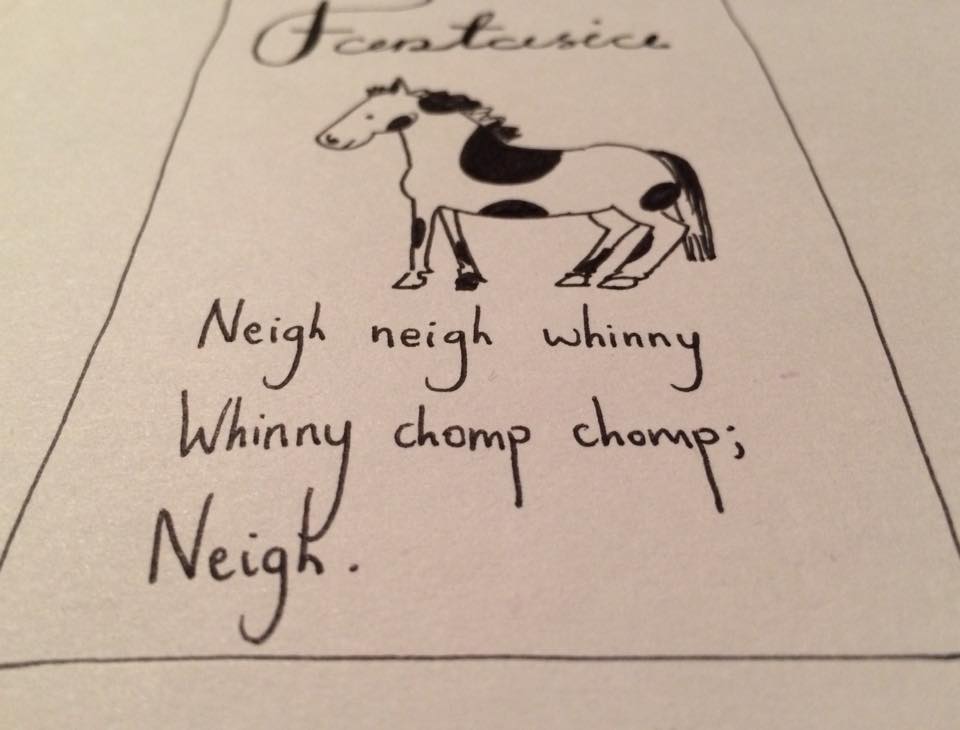 Fantasia
Neigh neigh whinny
Whinny chomp chomp;
Neigh.